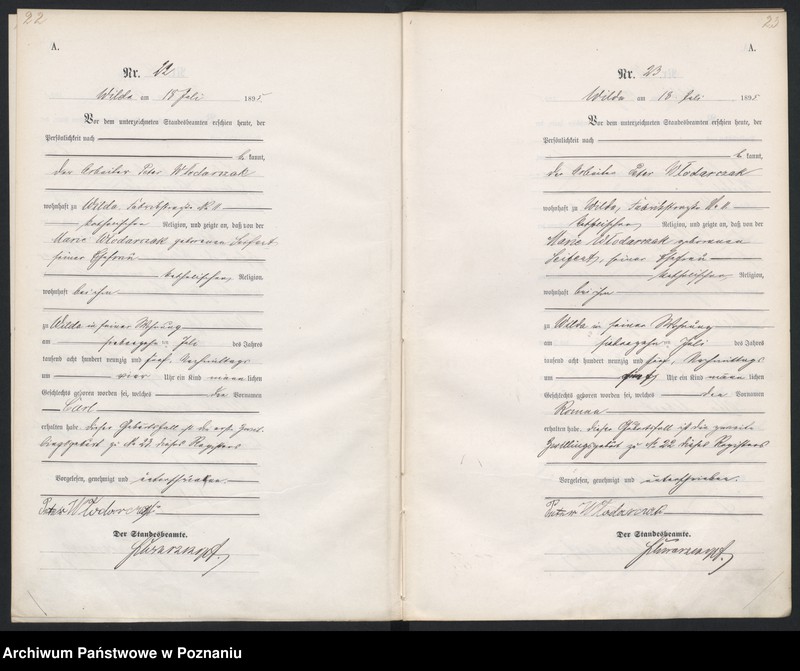 22
A.
Nr. 22
Wilda am 18 Juli 1895
Vor dem unterzeichneten Standesbeamten erschien heute, der
Persönlichkeit nach
be kannt,
der Arbeiter Peter Włodarczak
wohnhaft zu Wilda, Fabrikstraße
katholischer Religion, und zeigte an, daß von der
Marie Włodarczak geborenen Seifert
seiner Ehefrau
katholischer Religion,
wohnhaft bei ihm
zu Wilda in seiner Wohnung
am siebzehn ten Juli des Jahres
tausend acht hundert neunzig und fünf, Nachmittags
um vier Uhr ein Kind männ lichen
Geschlechts geboren worden sei, welches die Vornamen
Carl
erhalten habe. Dieser Geburtsfall ist die erste Zwil-
lingsgeburt zu № 23 dieses Registers
Vorgelesen, genehmigt und unterschrieben.
Peter Włodarczak
Der Standesbeamte.
Schwarzkopf.
23
A.
Nr. 23
Wilda am 18 Juli 1895
Vor dem unterzeichneten Standesbeamten erschien heute, der
Persönlichkeit nach
be kannt,
der Arbeiter Peter Włodarczak
wohnhaft zu Wilda, Fabrikstraße
katholischer Religion, und zeigte an, daß von der
Marie Włodarczak geborenen
Seifert, seiner Ehefrau
katholischer Religion,
wohnhaft bei ihm
zu Wilda in seiner Wohnung
am siebzehn ten Juli des Jahres
tausend acht hundert neunzig und fünf, Nachmittags
um fünf Uhr ein Kind männ lichen
Geschlechts geboren worden sei, welches die Vornamen
Roman
erhalten habe. Dieser Geburtsfall ist die zweite
Zwillingsgeburt zu № 22 dieses Registers
Vorgelesen, genehmigt und unterschrieben.
Peter Włodarczak
Der Standesbeamte.
Schwarzkopf.
Archiwum Państwowe w Poznaniu